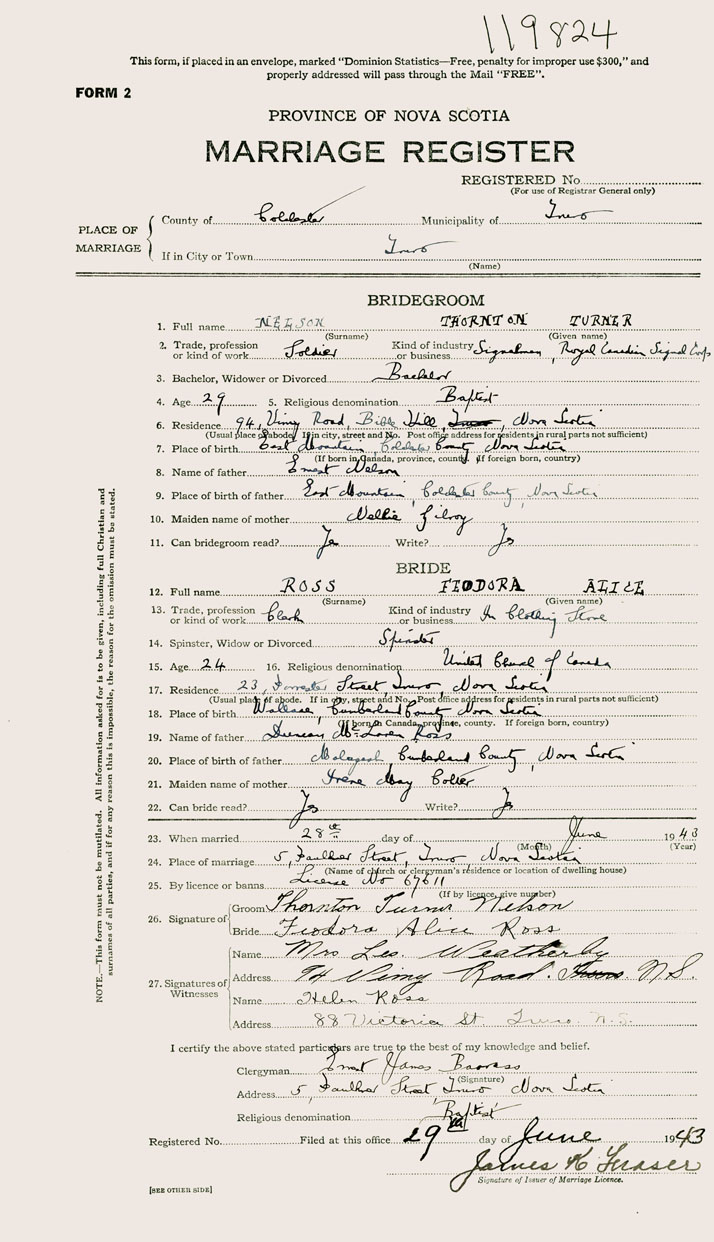 119824
This form, if placed in an envelope, marked “Dominion Statistics—Free, penalty for improper use $300,” and
properly addressed will pass through the Mail “FREE”.
FORM 2
PROVINCE OF NOVA SCOTIA
MARRIAGE REGISTER
REGISTERED No
(For use of Registrar General only)
PLACE OF MARRIAGE
County of Colchester Municipality of Truro
If in City or Town Truro
(Name)
BRIDEGROOM
1. Full name NELSON THORNTON TURNER
(Surname) (Given name)
2. Trade, profession or kind of work Soldier Kind of industry or business Signalman, Royal Canadian Signal Corps
3. Bachelor, Widower or Divorced Bachelor
4. Age 29 5. Religious denomination Baptist
6. Residence 94, Vimy Road, Bible Hill, Truro, Nova Scotia
(Usual place of abode. If in city, street and No. Post office address for residents in rural parts not sufficient)
7. Place of birth East Mountain, Colchester County, Nova Scotia
(If born in Canada, province, county. If foreign born, country)
8. Name of father Ernest Nelson
9. Place of birth of father East Mountain, Colchester County, Nova Scotia
10. Maiden name of mother Nellie Gilroy
11. Can bridegroom read? Yes Write? Yes
BRIDE
12. Full name ROSS FEODORA ALICE
(Surname) (Given name)
13. Trade, profession or kind of work Clerk Kind of industry or business In Clothing Store
14. Spinster, Widow or Divorced Spinster
15. Age 24 16. Religious denomination United Church of Canada
17. Residence 23, Forrester Street, Truro, Nova Scotia
(Usual place of abode. If in city, street and No. Post office address for residents in rural parts not sufficient)
18. Place of birth Wallace, Cumberland County, Nova Scotia
(If born in Canada, province, county. If foreign born, country)
19. Name of father Duncan McLaren Ross
20. Place of birth of father Malagash, Cumberland County, Nova Scotia
21. Maiden name of mother Irene May
22. Can bride read? Yes Write? Yes
23. When married 28th day of June 1943
(Month) (Year)
24. Place of marriage 5, Faulkner Street, Truro, Nova Scotia
(Name of church or clergyman's residence or location of dwelling house)
25. By licence or banns License No 67611
(If by licence, give number)
26. Signature of
Groom Thornton Turner Nelson
Bride Feodora Alice Ross
27. Signatures of Witnesses
Name Mrs Les. Weatherby
Address 94 Vimy Road. Truro. N.S.
Name Helen Ross
Address 88 Victoria St. Truro. N.S.
I certify the above stated particulars are true to the best of my knowledge and belief.
Clergyman Ernest James Barrass
(Signature)
Address 5, Faulkner Street Truro, Nova Scotia
Religious denomination "Baptist"
Registered No. Filed at this office 29th day of June 1943
James K Fraser
Signature of Issuer of Marriage Licence.
[SEE OTHER SIDE]
NOTE.—This form must not be mutilated. All information asked for is to be given, including full Christian and
surnames of all parties, and if for any reason this is impossible, the reason for the omission must be stated.